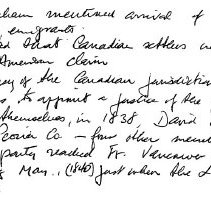 ham mentioned arrival of
emigrants.
ed that Canadian settlers w
American claim
ey of the Canadian jurisdiction
s, to appoint a justice of the
themselves, in 1838, David
Peoria Co – four other mem
party reached Ft. Vancouver
May, (1840) just when the